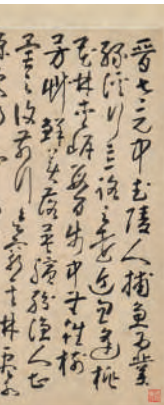 晉太元中武陵人捕魚為業
緣溪行忘路之遠近忽逢桃
花林夾岸數百步中無雜樹
芳草鮮美落英繽紛漁人甚
異之復前行欲窮其林